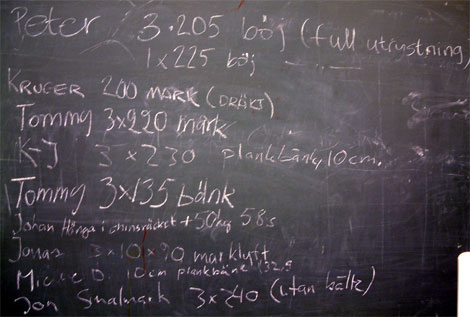 Peter 3·205 böj (full utrustning)
1x225 böj
KRUGER 200 MARK (DRÄKT)
Tommy 3x220 mark
K-J 3 x 230 plankbänk 10cm.
Tommy 3x135 bänk
Johan Hänga i chinsräcket + 50kg 58s
Jonas 3x10x90 marklyft
Micke D. 10cm plankbänk 132,5
Jon Smalmark 3x240 (utan bälte)